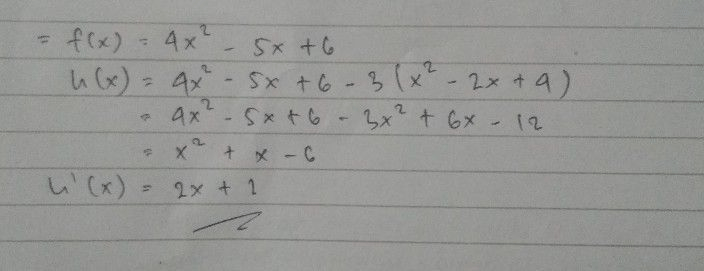 = f(x) = 4x² - 5x + 6
h(x) = 4x² - 5x + 6 - 3(x² - 2x + 4)
= 4x² - 5x + 6 - 3x² + 6x - 12
= x² + x - 6
h'(x) = 2x + 1